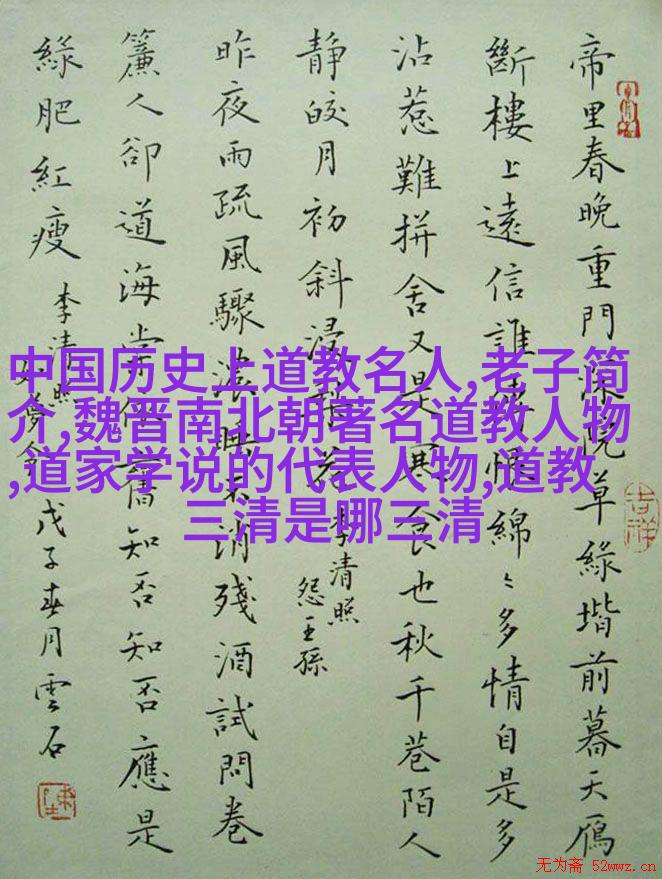 帝里春晚重門深院草緑堦前暮天鴈
斷樓上遠信誰傳恨綿〻多情自是多
沾惹難拼舍又是寒食也秋千巷陌人
靜皎月初斜浸梨花 李清照
怨王孫
昨夜雨疏風驟濃睡不消殘酒試問卷
簾人卻道海棠依舊知否知否應是
緑肥紅瘦 李清照
如夢令 戊子春月雲石
中国历史上道教名人,老子简
介,魏晋南北朝著名道教人物
,道家学说的代表人物,道教
三清是哪三清
吉祥
无为斋 52wwz.cn